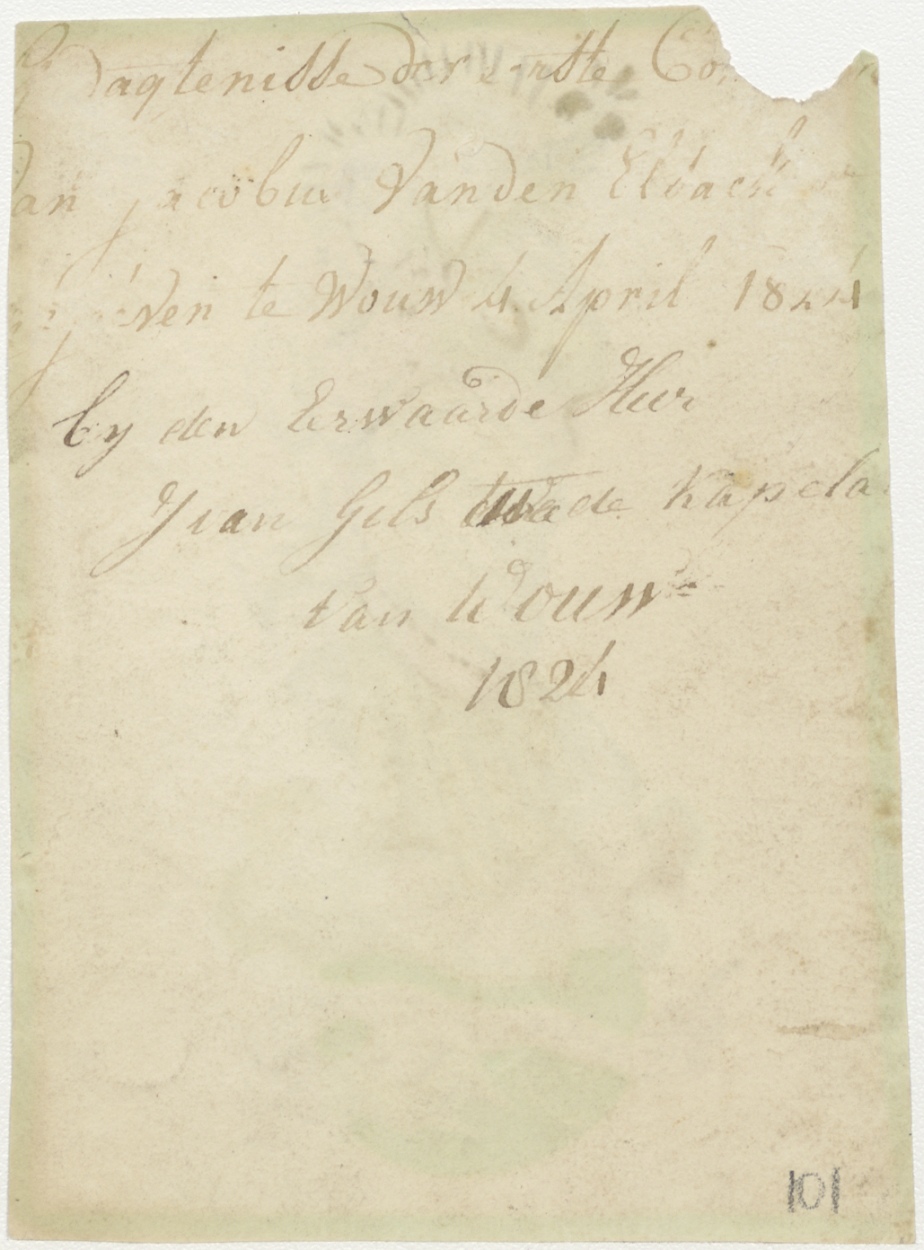 Gedagtenisse der eerste Com
van jacobus Vanden Elsack
gegeven te Wouw 4 April 1824
by den Eerwaarde Heer
J van Gils twede kapela
van Wouw
1824
101